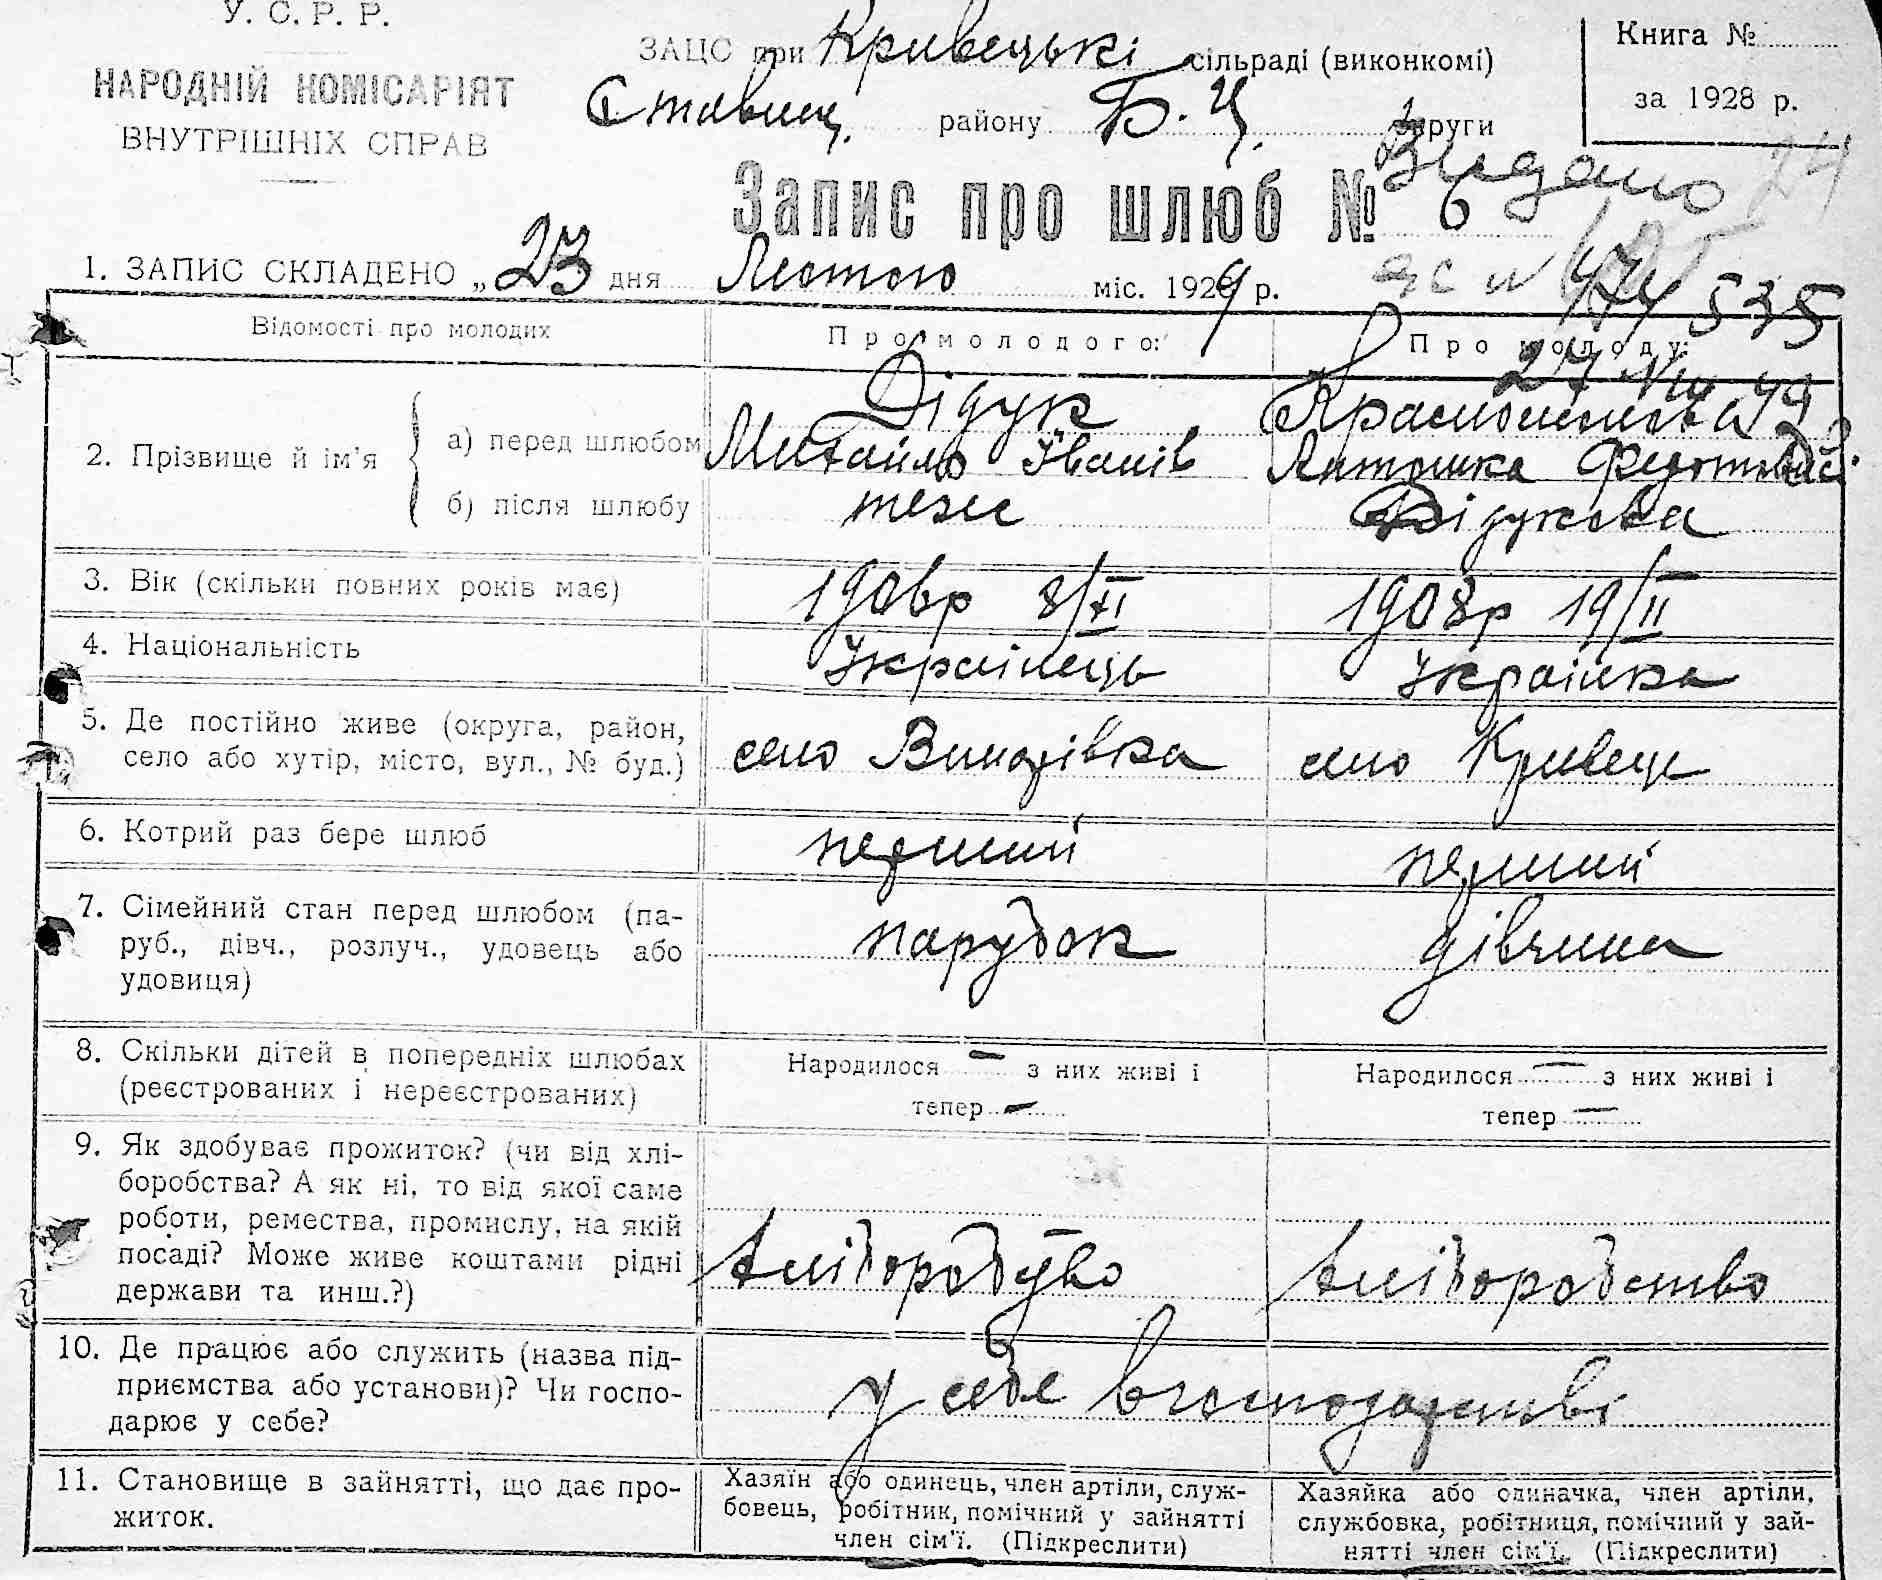 У. С. Р. Р.
НАРОДНІЙ КОМІСАРІЯТ
ВНУТРІШНІХ СПРАВ
ЗАЦС при Кривецькі сільраді (виконкомі)
Ставищ. району Б. Ц. округи
Книга №
за 1928 р.
Видано
Запис про шлюб № 6
1. ЗАПИС СКЛАДЕНО „23 дня Лютого міс. 1929 р.
535
Відомості про молодих
Про молодого:
Про молоду:
2. Прізвище й ім’я
а) перед шлюбом
Дідук
Михайло Іванів
Антонька
б) після шлюбу
теж
Дідукова
3. Вік (скільки повних років має)
1906р 8/XI
1908р 19/II
4. Національність
Українець
Українка
5. Де постійно живе (округа, район,
село або хутір, місто, вул., № буд.)
село Винарівка
село Кривець
6. Котрий раз бере шлюб
перший
перший
7. Сімейний стан перед шлюбом (па-
руб., дівч., розлуч., удовець або
удовиця)
парубок
дівчина
8. Скільки дітей в попередніх шлюбах
(реєстрованих і нереєстрованих)
Народилося — з них живі і
тепер —
Народилося — з них живі і
тепер —
9. Як здобуває прожиток? (чи від хлі-
боробства? А як ні, то від якої саме
роботи, ремества, промислу, на якій
посаді? Може живе коштами рідні
держави та инш.?)
хліборобство
хліборобство
10. Де працює або служить (назва під-
приємства або установи)? Чи госпо-
дарює у себе?
у себе в господарстві
11. Становище в зайнятті, що дає про-
житок.
Хазяїн або одинець, член артіли, служ-
бовець, робітник, помічний у зайнятті
член сім’ї. (Підкреслити)
Хазяйка або одиначка, член артіли,
службовка, робітниця, помічний у зай-
нятті член сім’ї. (Підкреслити)